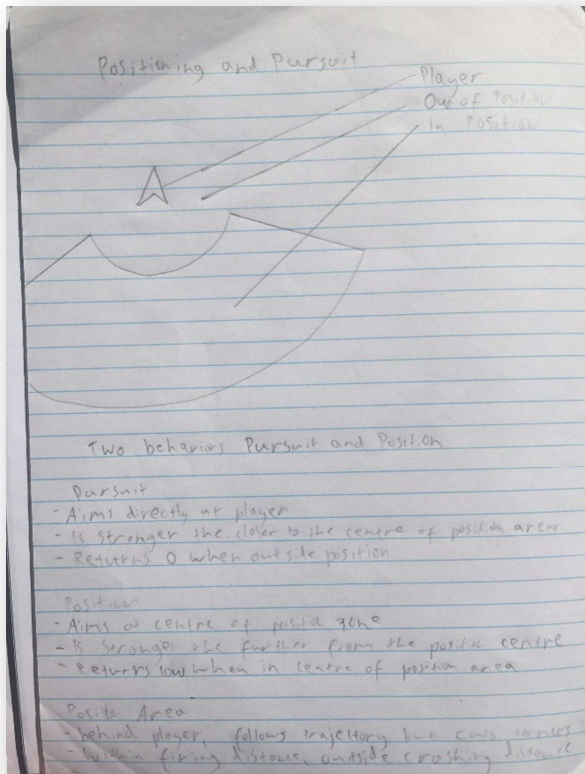 Positioning and Pursuit
Player
Out of Position
In Position
Two behaviors Pursuit and Position
Pursuit
- Aims directly at player
- Is stronger the closer to the centre of position area
- Returns 0 when outside position
Position
- Aims at centre of position zone
- Is stronger the further from the position centre
- Returns low when in centre of position area
Position Area
- behind player, follows trajectory but cuts corners
- Within firing distance, outside crashing distance